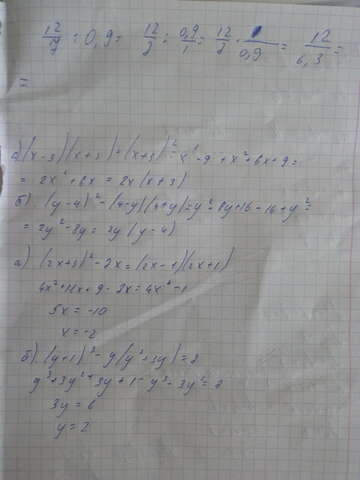 12/7 : 0,9 = 12/7 : 0,9/1 = 12/7 · 1/0,9 = 12/6,3 =
=
а) (x-3)(x+3)+(x+3)² = x²-9+x²+6x+9=
= 2x²+6x = 2x(x+3)
б) (y-4)²-(4-y)(4+y)=y²-8y+16-16+y²=
= 2y²-8y = 2y(y-4)
а) (2x+3)²-2x=(2x-1)(2x+1)
4x²+12x+9-2x=4x²-1
5x = -10
x = -2
б) (y+1)³-y(y²+3y)=2
y³+3y²+3y+1-y³-3y²=2
3y = 6
y = 2